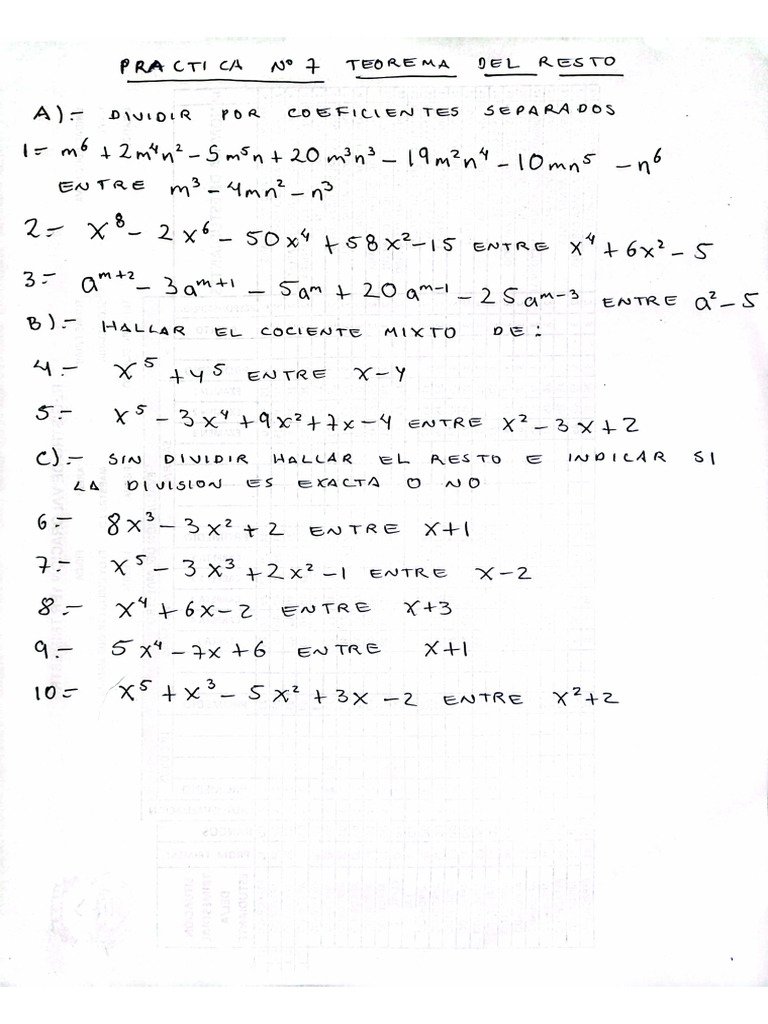 PRACTICA Nº 7 TEOREMA DEL RESTO
A).- DIVIDIR POR COEFICIENTES SEPARADOS
1= m⁶ + 2m⁴n² - 5m⁵n + 20m³n³ - 19m²n⁴ - 10mn⁵ - n⁶
ENTRE m³ - 4mn² - n³
2.- x⁸ - 2x⁶ - 50x⁴ + 58x² - 15 ENTRE x⁴ + 6x² - 5
3.- aᵐ⁺² - 3aᵐ⁺¹ - 5aᵐ + 20aᵐ⁻¹ - 25aᵐ⁻³ ENTRE a² - 5
B).- HALLAR EL COCIENTE MIXTO DE:
4.- x⁵ + y⁵ ENTRE x - y
5.- x⁵ - 3x⁴ + 9x² + 7x - 4 ENTRE x² - 3x + 2
C).- SIN DIVIDIR HALLAR EL RESTO E INDICAR SI
LA DIVISION ES EXACTA O NO
6.- 8x³ - 3x² + 2 ENTRE x + 1
7.- x⁵ - 3x³ + 2x² - 1 ENTRE x - 2
8.- x⁴ + 6x - 2 ENTRE x + 3
9.- 5x⁴ - 7x + 6 ENTRE x + 1
10= x⁵ + x³ - 5x² + 3x - 2 ENTRE x² + 2